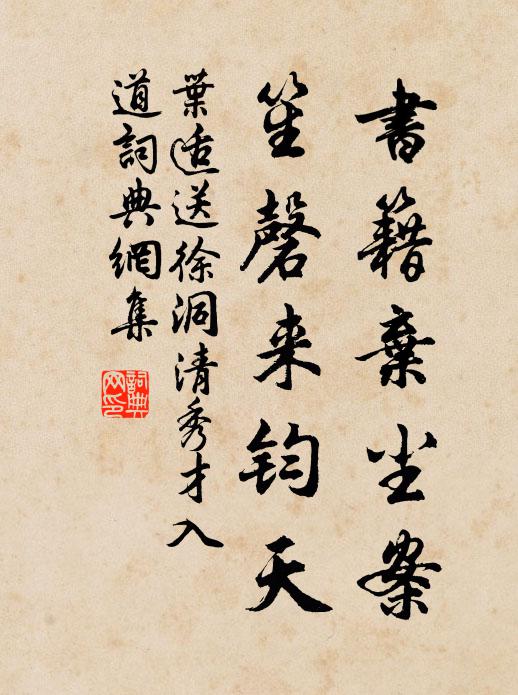 書籍棄尘案
笙磬来鈞天
葉适送徐洞清秀才入
道詞典網集
詞典
网印